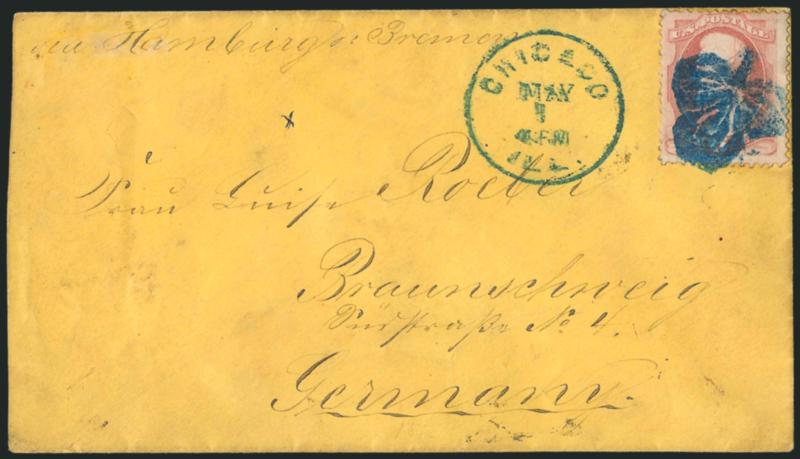 via Hamburg or Bremen
U.S. POSTAGE
CHICAGO
MAY
1
4 P.M
ILL.
Frau Luise Roeber
Braunschweig
Südstraße No 4.
Germany.